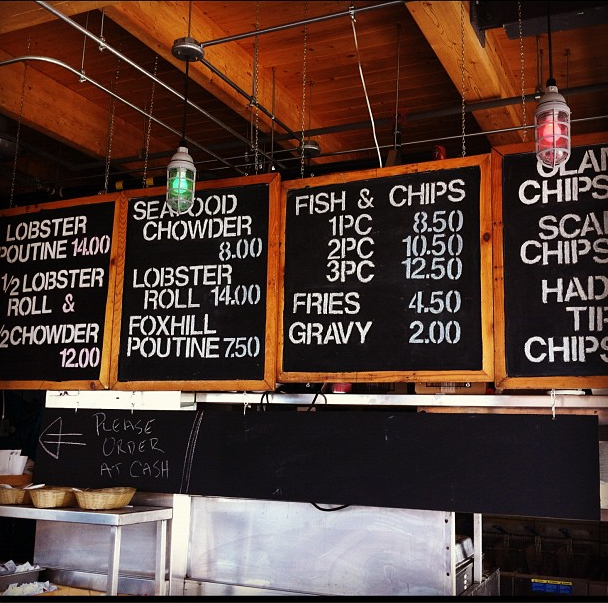 LOBSTER
POUTINE 14.00
1/2 LOBSTER
ROLL &
1/2 CHOWDER
12.00
SEAFOOD
CHOWDER
8.00
LOBSTER
ROLL 14.00
FOXHILL
POUTINE 7.50
FISH & CHIPS
1PC 8.50
2PC 10.50
3PC 12.50
FRIES 4.50
GRAVY 2.00
CLAM
CHIPS
SCAL
CHIPS
HAD
TIP
CHIPS
PLEASE
ORDER
AT CASH